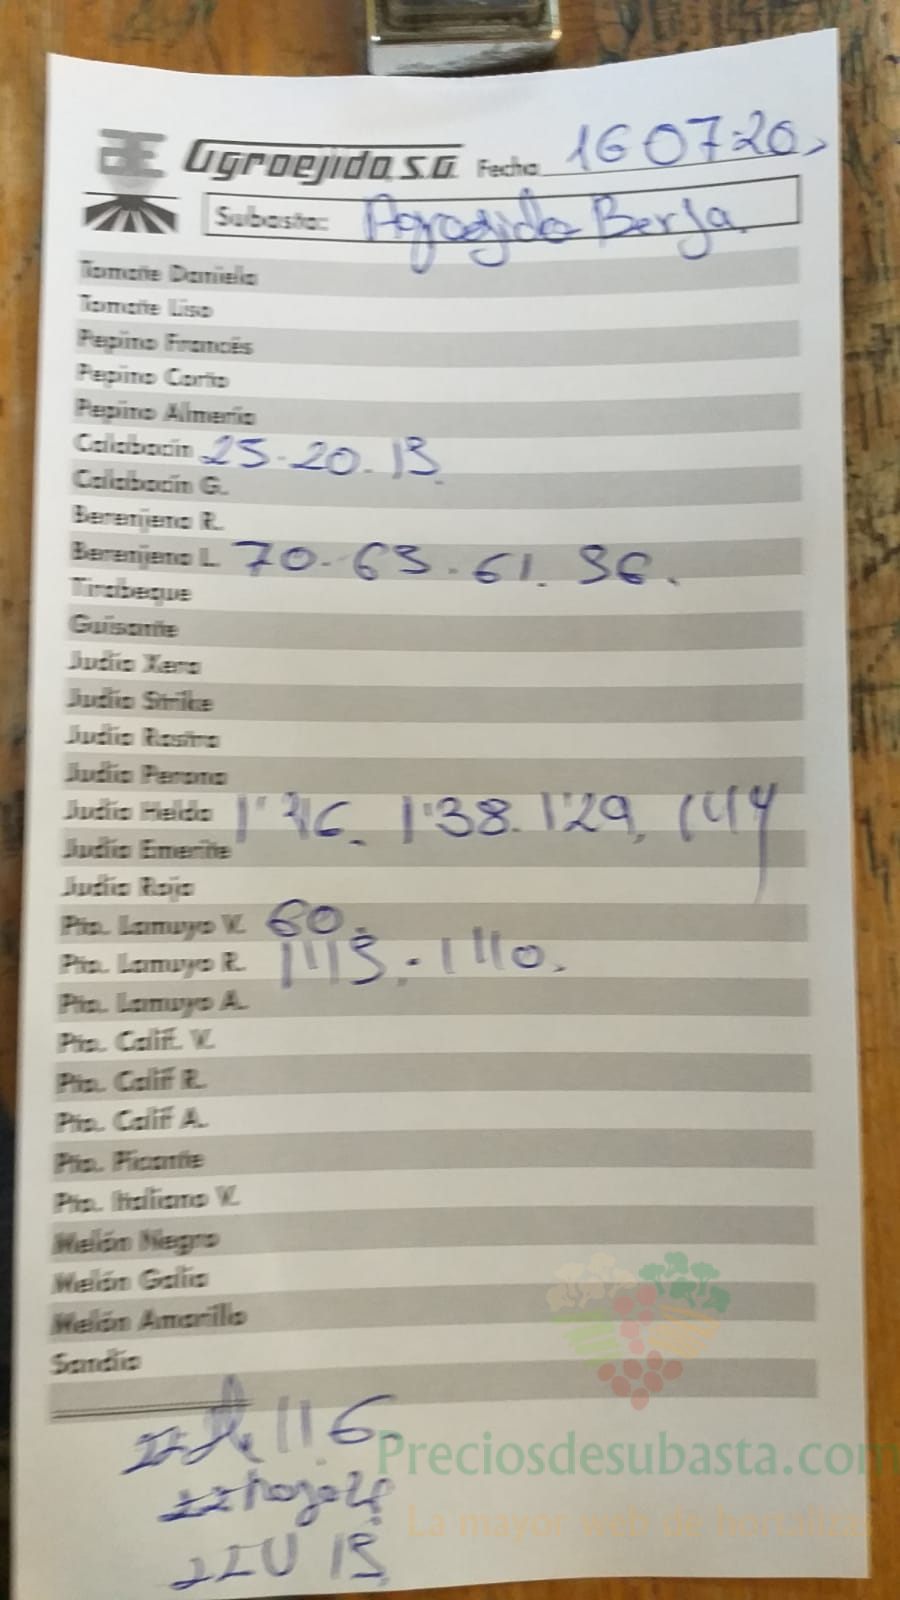 Agroejido, S.A. Fecha 160720
Subasta: Agroejido Berja
Tomate Daniela
Tomate Liso
Pepino Francés
Pepino Corto
Pepino Almería
Calabacín 25-20. 13
Calabacín G.
Berenjena R.
Berenjena L. 70-63-61.
Tirabeque
Guisante
Judía Xera
Judía Strike
Judía Rastra
Judía Perona
Judía Helda 1'38. 1'29,
Judía Emerite
Judía Roja
Pto. Lamuyo V. 60.
Pto. Lamuyo R. 1'10.
Pto. Lamuyo A.
Pto. Calif. V.
Pto. Calif R.
Pto. Calif A.
Pto. Picante
Pto. Italiano V.
Melón Negro
Melón Galia
Melón Amarillo
Sandía
Preciosdesubasta.com
La mayor web de hortaliza